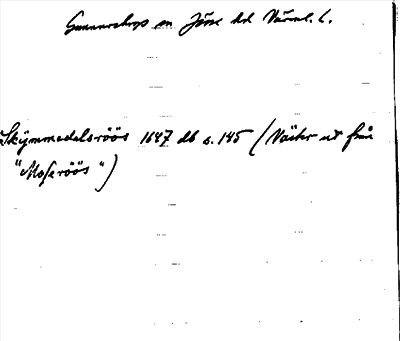 Gunnarskogs sn Jösse hd Värml. l.
Skymmedelsröös 1647 db s. 145 (Väster ut från
"Moseröös")